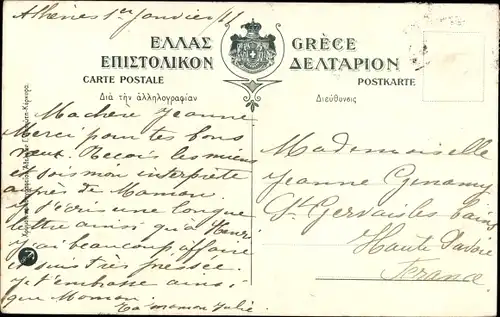 Athènes 1er Janvier
ΕΛΛΑΣ GRÈCE
ΕΠΙΣΤΟΛΙΚΟΝ ΔΕΛΤΑΡΙΟΝ
CARTE POSTALE POSTKARTE
Διὰ τὴν ἀλληλογραφίαν Διεύθυνσις
Ma chère Jeanne
Merci pour tes bons
vœux. Reçois les miens
et sois mon interprète
auprès de Maman
j'écris une longue
lettre ainsi qu'à Henri
j'ai beaucoup affaire
et suis très pressée.
Je t'embrasse ainsi
que Maman
Ta maman Julie
Mademoiselle
Jeanne
St Gervais les bains
Haute Savoie
France